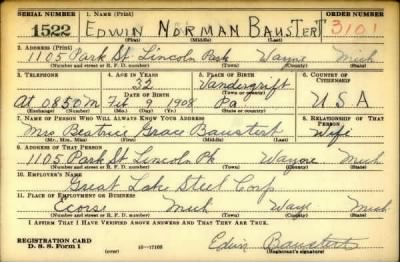 SERIAL NUMBER 1. NAME (Print) ORDER NUMBER
1522 EDWIN NORMAN BAUSTERT 3101
(First) (Middle) (Last)
2. ADDRESS (Print)
1105 Park St Lincoln Park Wayne Mich
(Number and street or R. F. D. number) (Town) (County) (State)
3. TELEPHONE 4. AGE IN YEARS 5. PLACE OF BIRTH 6. COUNTRY OF CITIZENSHIP
32 Vandergrift
DATE OF BIRTH (Town or county)
At 0850M Feb 9 1908 Pa U S A
(Exchange) (Number) (Mo.) (Day) (Yr.) (State or country)
7. NAME OF PERSON WHO WILL ALWAYS KNOW YOUR ADDRESS 8. RELATIONSHIP OF THAT PERSON
Mrs Beatrice Grace Baustert Wife
(Mr., Mrs., Miss) (First) (Middle) (Last)
9. ADDRESS OF THAT PERSON
1105 Park St Lincoln Pk Wayne Mich
(Number and street or R. F. D. number) (Town) (County) (State)
10. EMPLOYER'S NAME
Great Lake Steel Corp
11. PLACE OF EMPLOYMENT OR BUSINESS
Ecorse Mich Wayne Mich
(Number and street or R. F. D. number) (Town) (County) (State)
I AFFIRM THAT I HAVE VERIFIED ABOVE ANSWERS AND THAT THEY ARE TRUE.
REGISTRATION CARD
D. S. S. Form 1 (over) 16-17105 Edwin Baustert
(Registrant's signature)